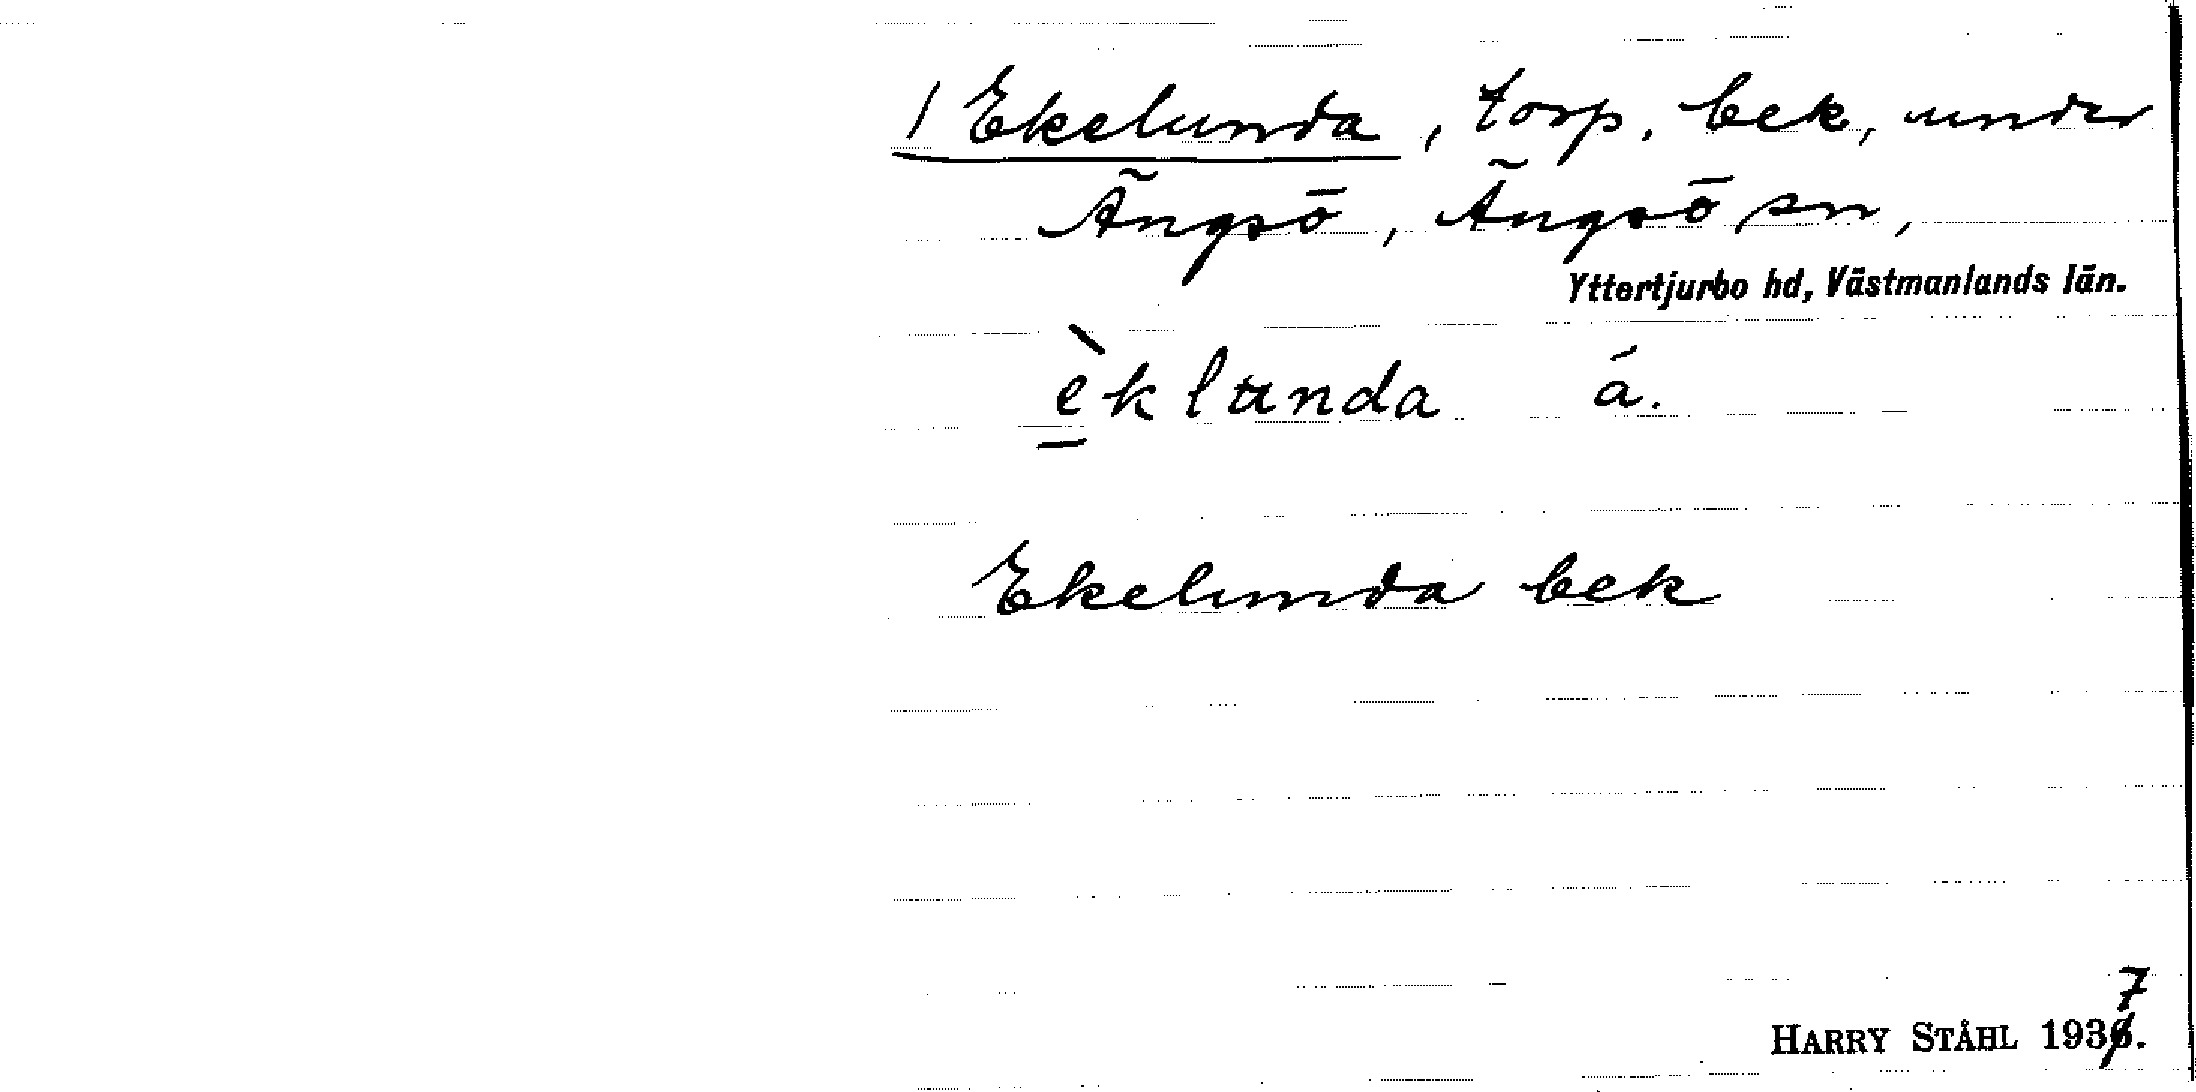 1 Ekelunda, torp, bek, under
Ängsö, Ängsö sn,
Yttertjurbo hd, Västmanlands län.
èklunda á.
Ekelunda bek
7
HARRY STÅHL 1936.